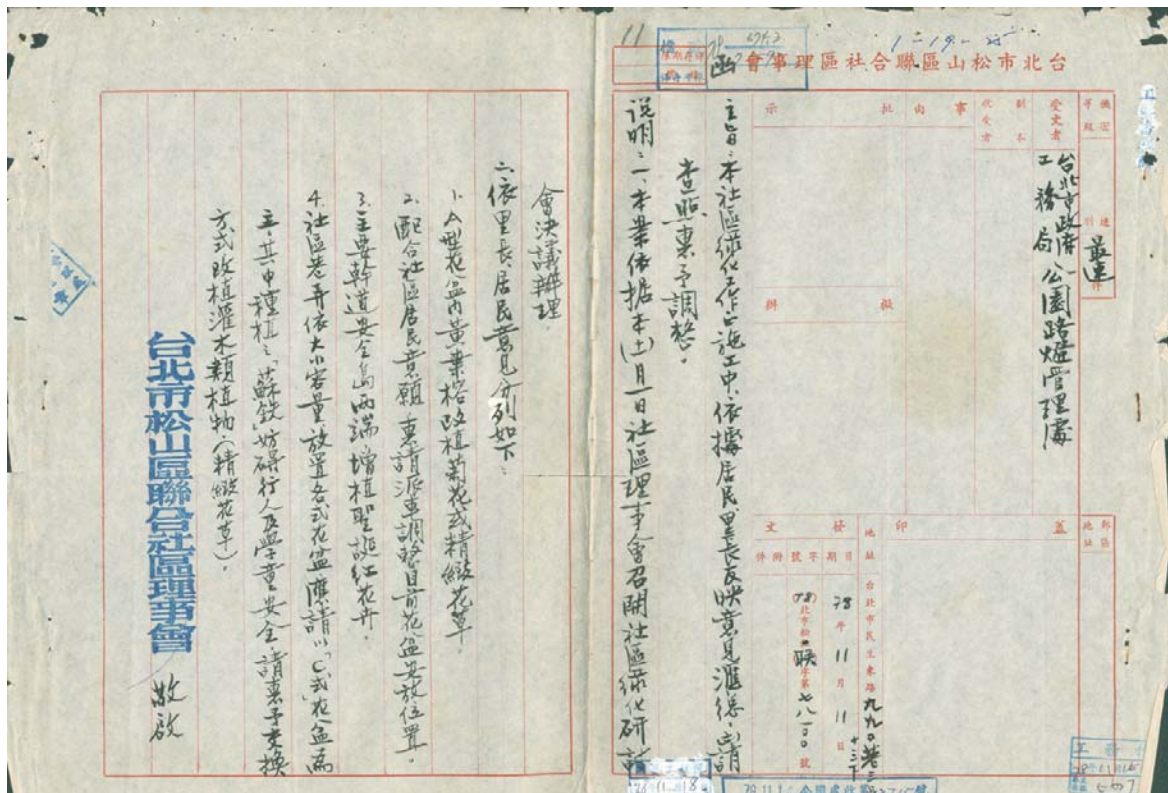 台北市松山區聯合社區理事會 函
機密等級
速別 最速件
受文者 台北市政府工務局公園路燈管理處
副本收受者
事由
批示
擬辦
郵區
地址
蓋印
發文
地址 台北市民生東路九九〇巷
日期 78年11月11日
字號 (78)北市松 聯 字第七八一〇〇號
附件
主旨：本社區綠化工作已施工中，依據居民里長反映意見滙總，函請
查照惠予調整。
說明：一、本業依据本(十一)月一日社區理事會召開社區綠化研討
會決議辦理。
二、依里長、居民意見分列如下：
1. A型花盆內黃葉榕改植菊花或精緻花草。
2. 配合社區居民意願，惠請派車調整目前花盆安放位置。
3. 主要幹道安全島兩端，增植聖誕紅花卉。
4. 社區巷弄依大小容量，放置各式花盆應請以「C」式花盆為
主，其中種植之「蘇鉄」妨碍行人及學童安全，請惠予更換
方式改植灌木類植物(精緻花草)。
台北市松山區聯合社區理事會 敬啟